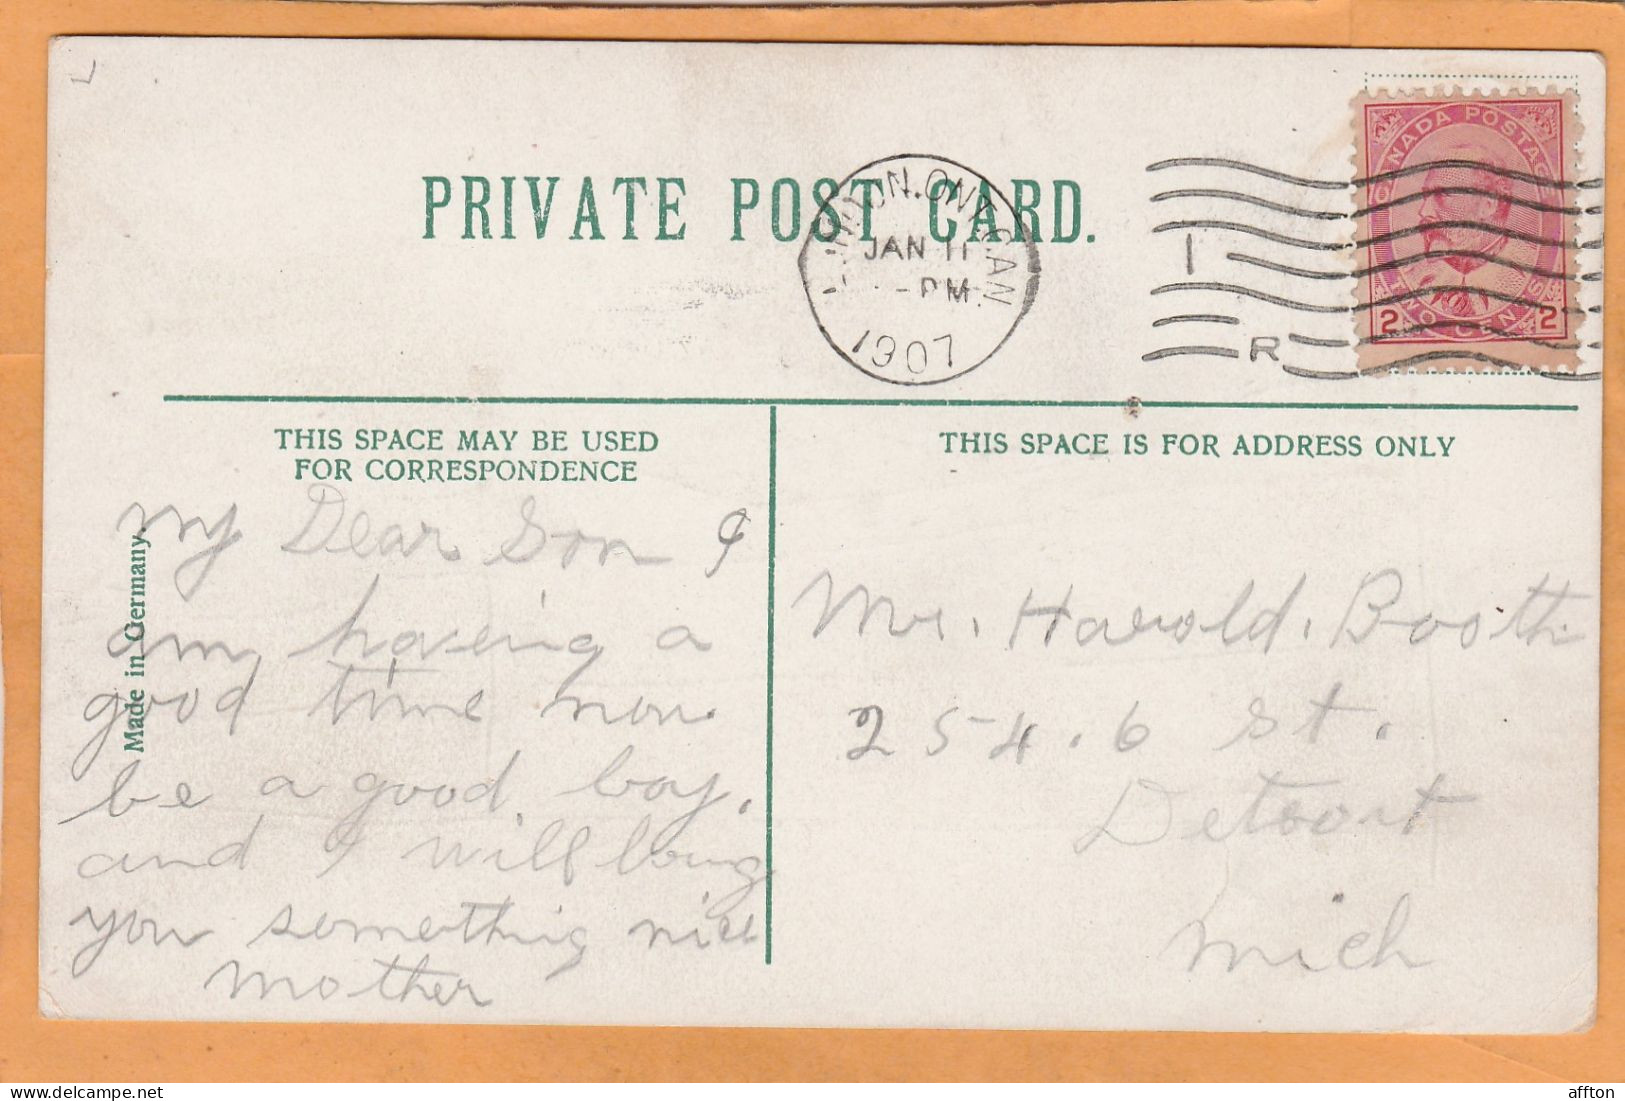 PRIVATE POST CARD.
LONDON.ONT.CAN
JAN 11
-PM
1907
I
R
CANADA POSTAGE
2 TWO CENTS 2
THIS SPACE MAY BE USED
FOR CORRESPONDENCE
THIS SPACE IS FOR ADDRESS ONLY
Made in Germany.
My Dear Son I
am having a
good time now
be a good boy.
and I will bring
you something nice
mother
Mr. Harold. Booth
254. 6 St.
Detroit
Mich
affton